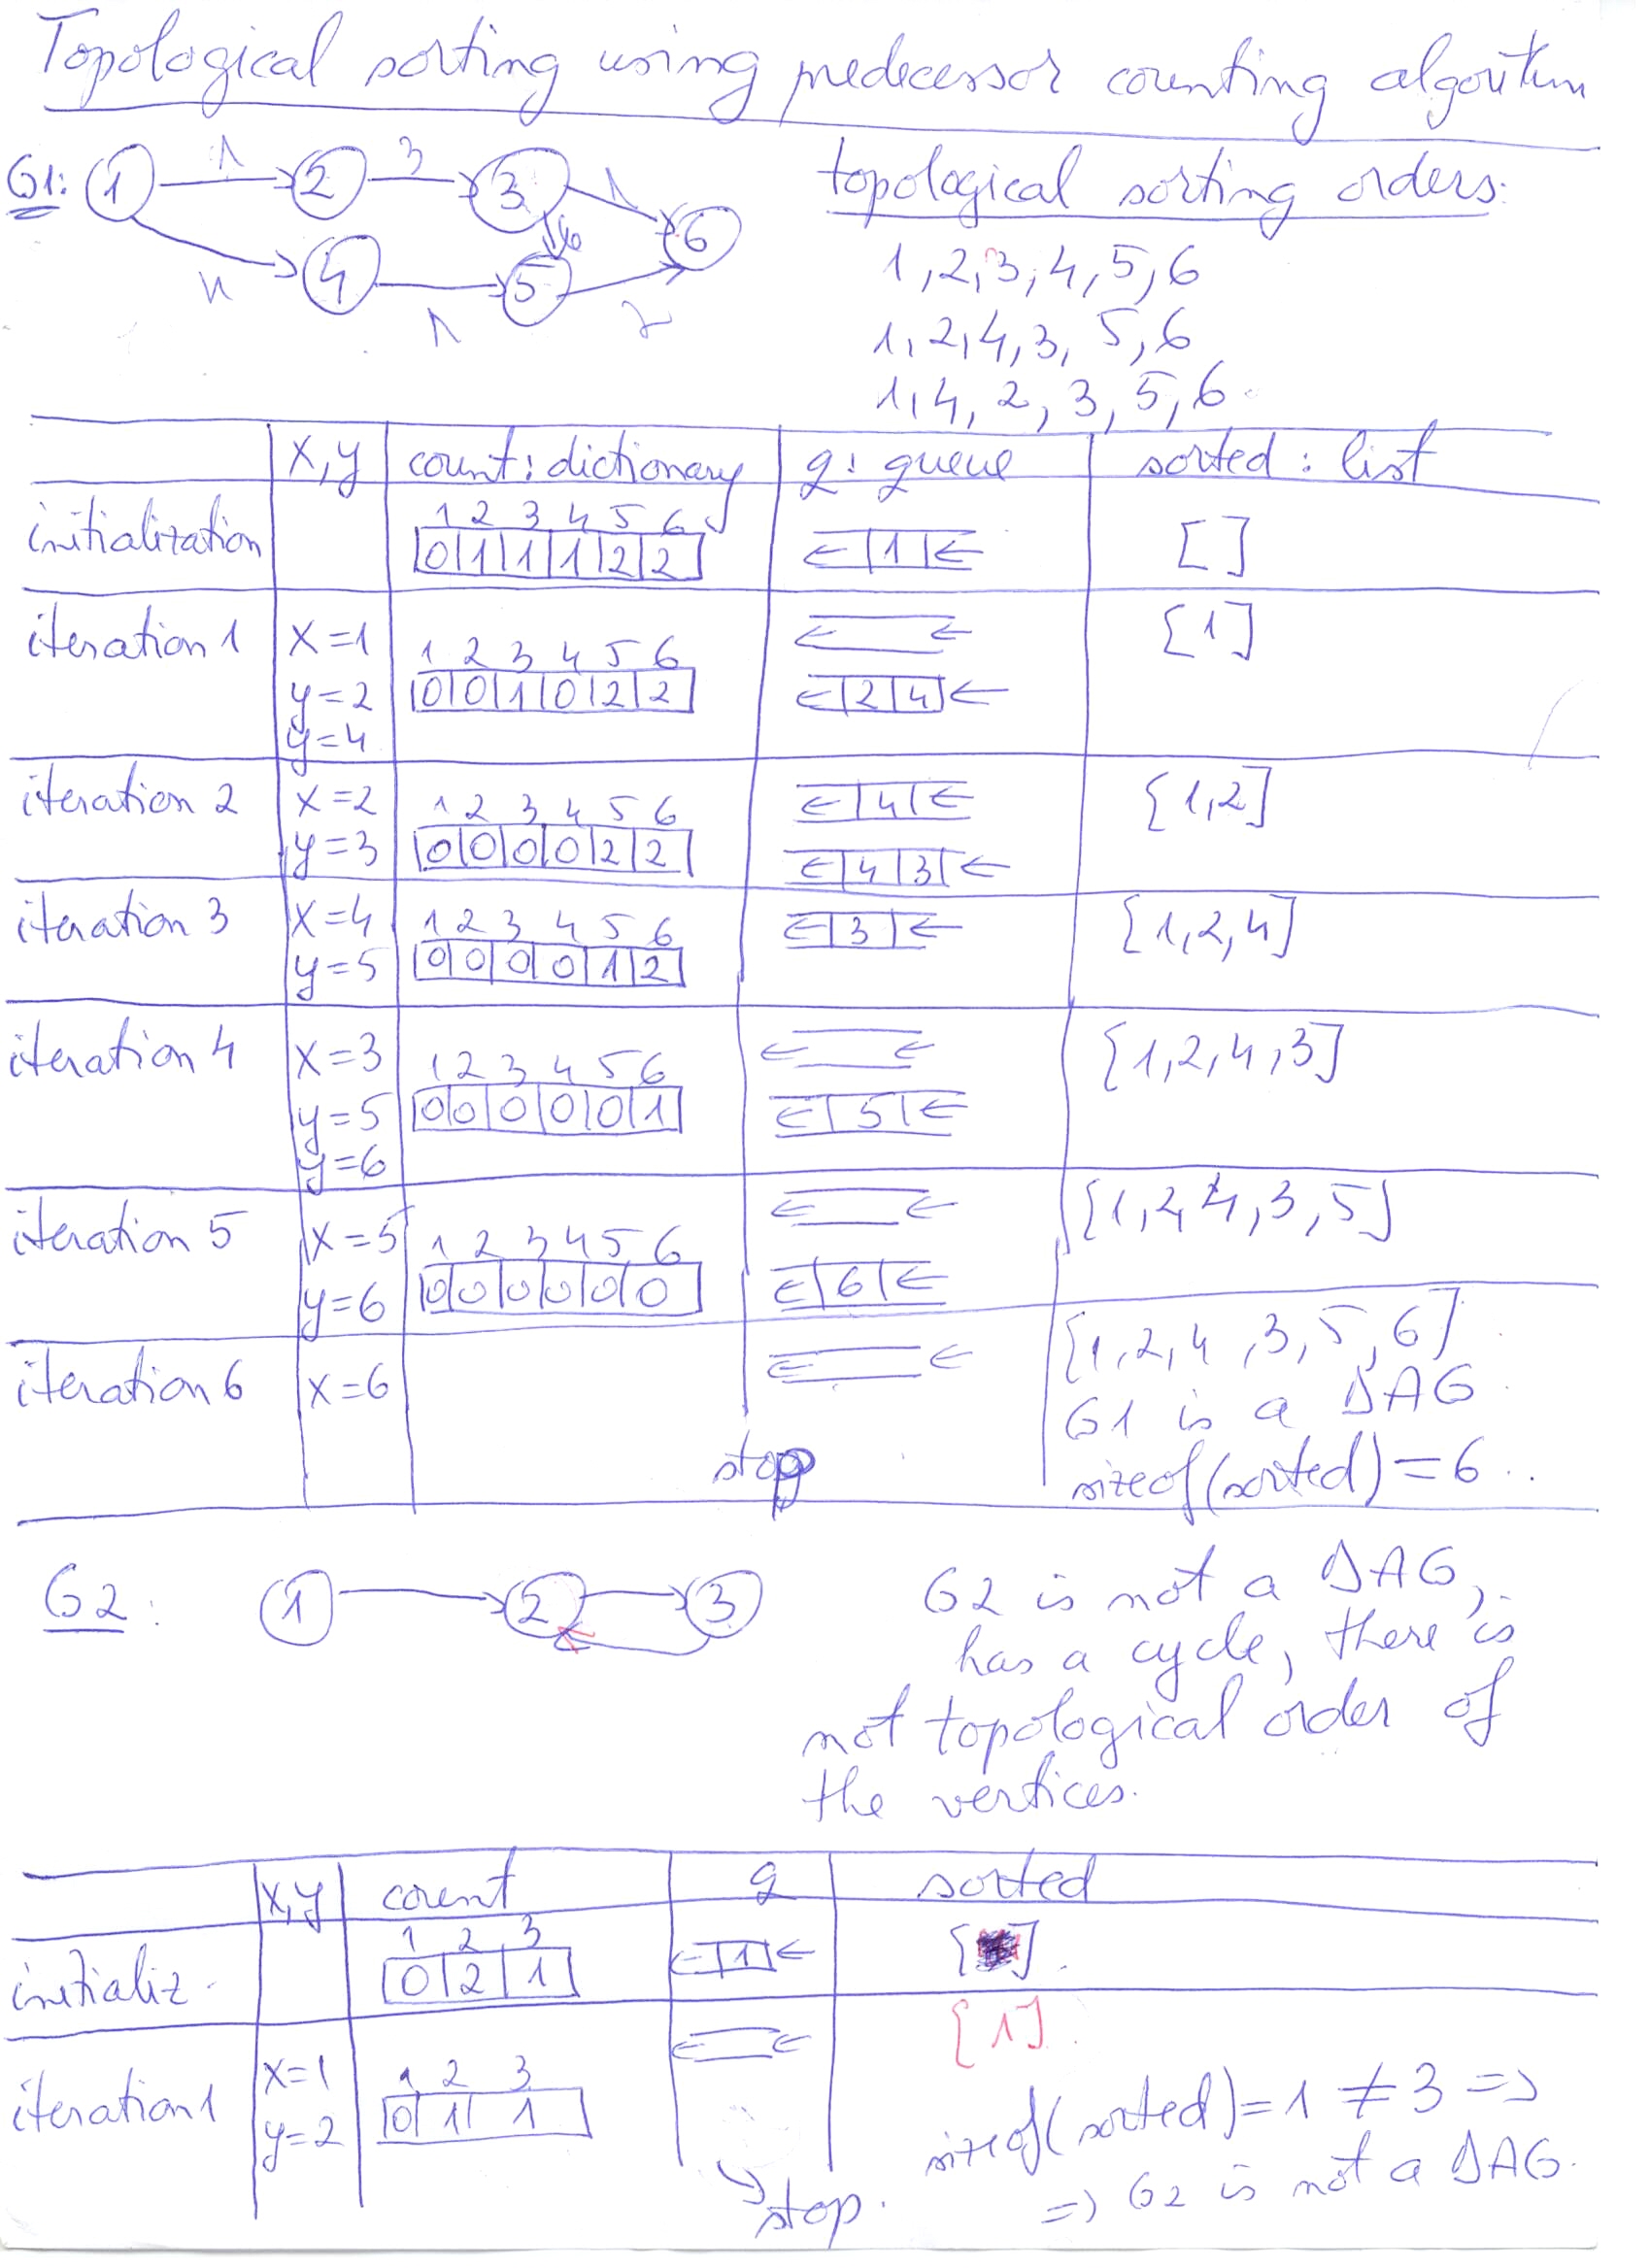 Topological sorting using predecessor counting algoritm
G1: 1 1 2 3 3 1 6
6
4 4 1 5 2
topological sorting orders:
1, 2, 3, 4, 5, 6
1, 2, 4, 3, 5, 6
1, 4, 2, 3, 5, 6
x, y count: dictionary q: queue sorted: list
initialization
1 2 3 4 5 6
0 1 1 1 2 2
← 1 ←
[ ]
iteration 1 x=1
y=2
y=4
1 2 3 4 5 6
0 0 1 0 2 2
← ←
← 2 4 ←
[1]
iteration 2 x=2
y=3
1 2 3 4 5 6
0 0 0 0 2 2
← 4 ←
← 4 3 ←
[1,2]
iteration 3 x=4
y=5
1 2 3 4 5 6
0 0 0 0 1 2
← 3 ←
[1,2,4]
iteration 4 x=3
y=5
y=6
1 2 3 4 5 6
0 0 0 0 0 1
← ←
← 5 ←
[1,2,4,3]
iteration 5 x=5
y=6
1 2 3 4 5 6
0 0 0 0 0 0
← ←
← 6 ←
[1,2,4,3,5]
iteration 6 x=6
← ←
stop
[1,2,4,3,5,6]
G1 is a DAG
sizeof(sorted)=6
G2: 1 2 3
G2 is not a DAG,
has a cycle, there is
not topological order of
the vertices.
x,y count q sorted
initializ.
1 2 3
0 2 1
← 1 ←
[ ].
iteration 1 x=1
y=2
1 2 3
0 1 1
← ←
→ stop.
[1].
sizeof(sorted)=1 ≠ 3 =>
=> G2 is not a DAG.